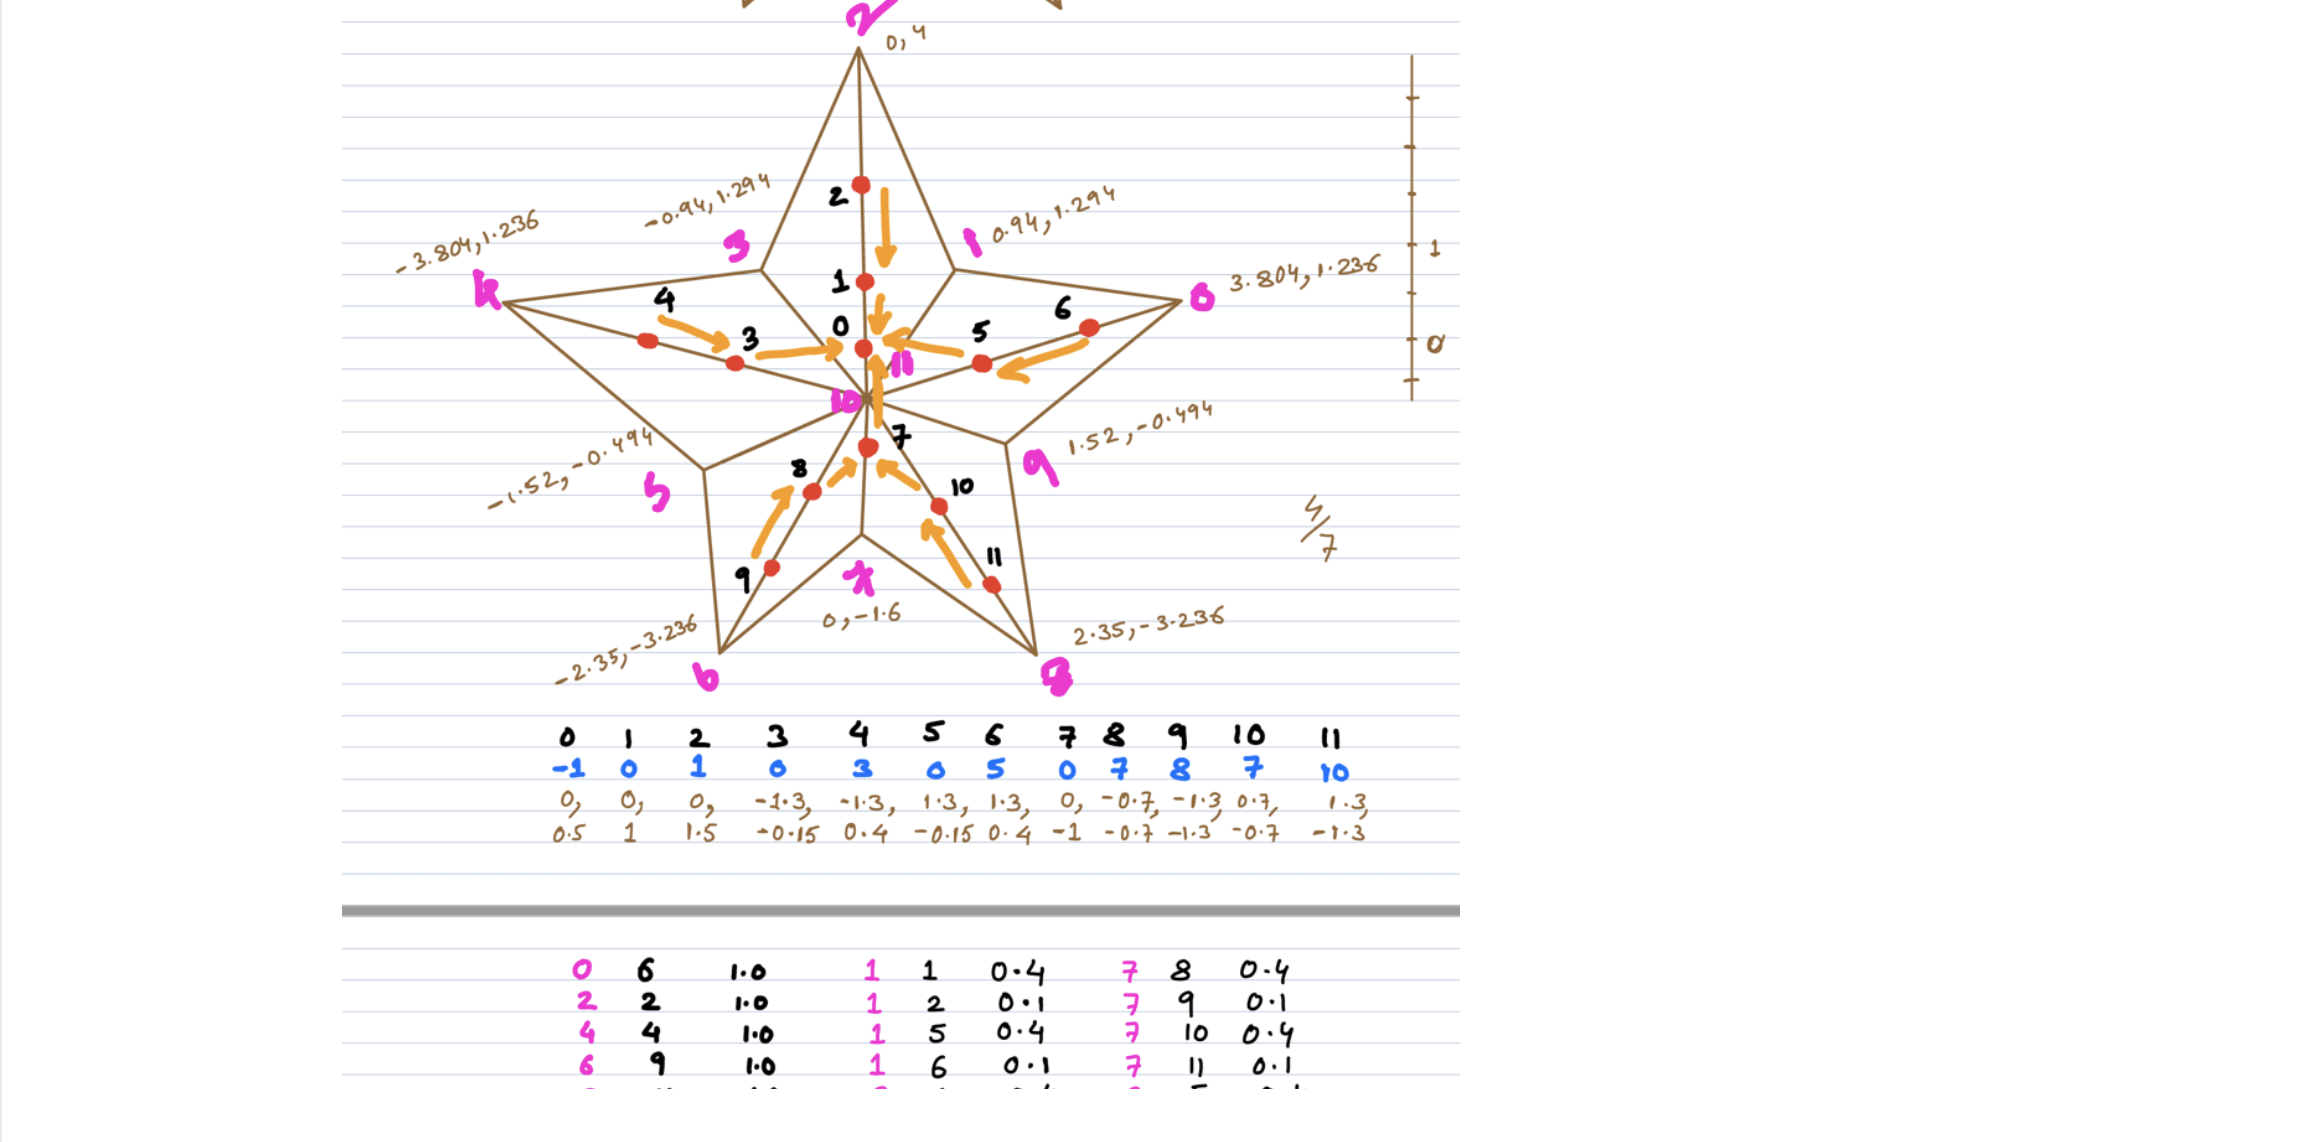 2
0, 4
-0.94, 1.294
2
1
0.94, 1.294
-3.804, 1.236
3
1
3.804, 1.236
4
4
3
0
5
6
0
0
11
10
7
1.52, -0.494
-1.52, -0.494
5
8
10
9
4/7
9
11
7
0, -1.6
2.35, -3.236
-2.35, -3.236
6
8
0 1 2 3 4 5 6 7 8 9 10 11
-1 0 1 0 3 0 5 0 7 8 7 10
0, 0, 0, -1.3, -1.3, 1.3, 1.3, 0, -0.7, -1.3, 0.7, 1.3,
0.5 1 1.5 -0.15 0.4 -0.15 0.4 -1 -0.7 -1.3 -0.7 -1.3
0 6 1.0 1 1 0.4 7 8 0.4
2 2 1.0 1 2 0.1 7 9 0.1
4 4 1.0 1 5 0.4 7 10 0.4
6 9 1.0 1 6 0.1 7 11 0.1